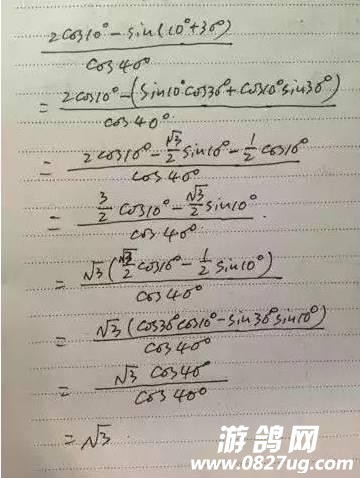 2cos10° - sin(10°+30°)
cos40°
= 2cos10° - (sin10°cos30° + cos10°sin30°)
cos40°
= 2cos10° - √3/2 sin10° - 1/2 cos10°
cos40°
= 3/2 cos10° - √3/2 sin10°
cos40°
= √3(√3/2 cos10° - 1/2 sin10°)
cos40°
= √3(cos30°cos10° - sin30°sin10°)
cos40°
= √3 cos40°
cos40°
= √3
游鸽网
www.0827ug.com